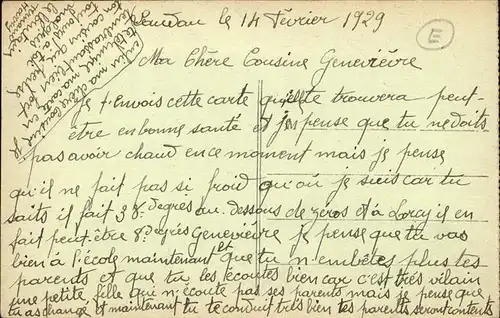 Loudun le 14 Février 1929
E
Ma Chère Cousine Geneviévre
Je t'envois cette carte qu'elle te trouvera peut-
être en bonne santé et je pense que tu ne doits
pas avoir chaud en ce moment mais je pense
qu'il ne fait pas si froid qu'où je suis car tu
saits il fait 38 degres au dessous de zeros et à Lorcy il en
fait peut-être 8 degrés Geneviévre je pense que tu vas
bien à l'école maintenant et que tu n'embêtes plus tes
parents et que tu les écoutes bien car c'est trés vilain
une petite fille qui n'écoute pas ses parents mais je pense que
tu as changé et maintenant tu te conduit trés bien tes parents seront contents
ma chère cousine je
ma carte en
t'embrassant bien fort
ton cousin qui